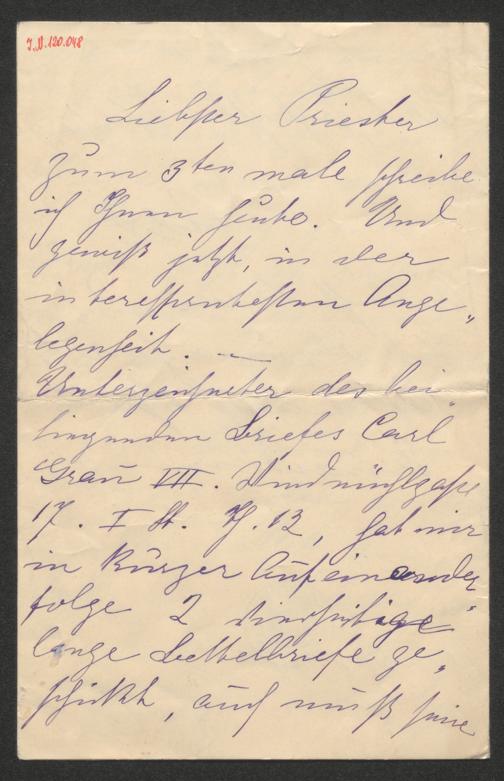 I.N. 120.048
Liebster Priester
zum 3ten male schreibe
ich Ihnen heute. Und
gewiß jetzt, in der
interessantesten Ange„
legenheit. —
Unterzeichneter des bei„
liegenden Briefes Carl
Grau VII. Windmühlgasse
17. I St. Th. 12, hat mir
in kurzer Aufeinander„
folge 2
lange Bettelbriefe ge„
schickt, auch muß seine